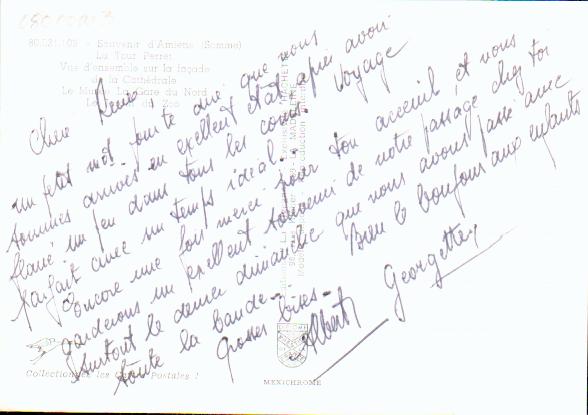 80.021.102 - Souvenir d'Amiens (Somme)
La Tour Perret
Vue d'ensemble sur la façade
de la Cathédrale
La Gare du Nord
Zoo
Chère
un petit mot pour te dire que nous
sommes arrivés en excellent état après avoir
flané un peu dans tous les coins. Voyage
parfait avec un temps idéal.
Encore une fois merci pour ton accueil, et nous
garderons un excellent souvenir de notre passage chez toi
surtout le dernier dimanche que nous avons passé avec
toute la bande - Bien le bonjour aux enfants
Grosses bises -
Albert Georgette
Collectionnez les Cartes Postales !
MEXICHROME